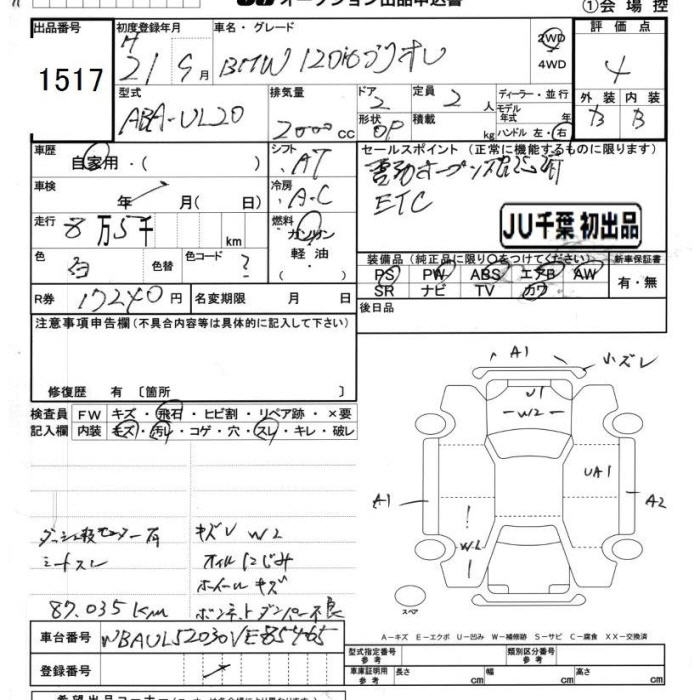 オークション出品申込書
①会場控
出品番号 初度登録年月 車名・グレード 評価点
1517
H 21 9月 BMW 120iカブリオレ 2WD 4WD 4
型式 排気量 ドア 定員 ディーラー・並行 外装 内装
ABA-UL20 2000cc 2 2人 モデル年式 年 B B
形状 OP 積載 kg ハンドル 左・右
車歴 自家用・( ) シフト ・AT セールスポイント(正常に機能するものに限ります)
車検 年 月( 日) 冷房 ・A・C
電動オープン
ETC
走行 8万5千 km 燃料 ガソリン 軽油 ・
JU千葉 初出品
色 白 色替 色コード ?
装備品(純正品に限り○をつけてください) 新車保証書
PS PW ABS エアB AW 有・無
SR ナビ TV カワ
R券 17240円 名変期限 月 日
後日品
注意事項申告欄(不具合内容等は具体的に記入して下さい)
修復歴 有 〔箇所 〕
検査員 FW キズ・飛石・ヒビ割・リペア跡・×要
記入欄 内装 キズ・汚レ・コゲ・穴・スレ・キレ・破レ
A1 小ズレ
U1
W2
UA1
A1 A2
W2
スペア
キズU W2
シートスレ オイルにじみ
ホイールキズ
87.035Km ボンネットダンパー不良
A-キズ E-エクボ U-凹み W-補修跡 S-サビ C-腐食 XX-交換済
車台番号 WBAUL52030VE85465
登録番号
型式指定番号 参考 類別区分番号 参考
車庫証明用 参考 長さ cm 幅 cm 高さ cm
希望出品コーナー